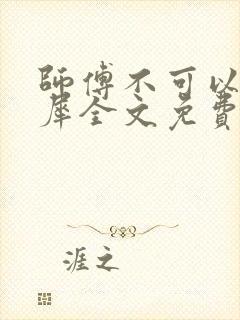 師傅不可以
犀全文免費
涯之